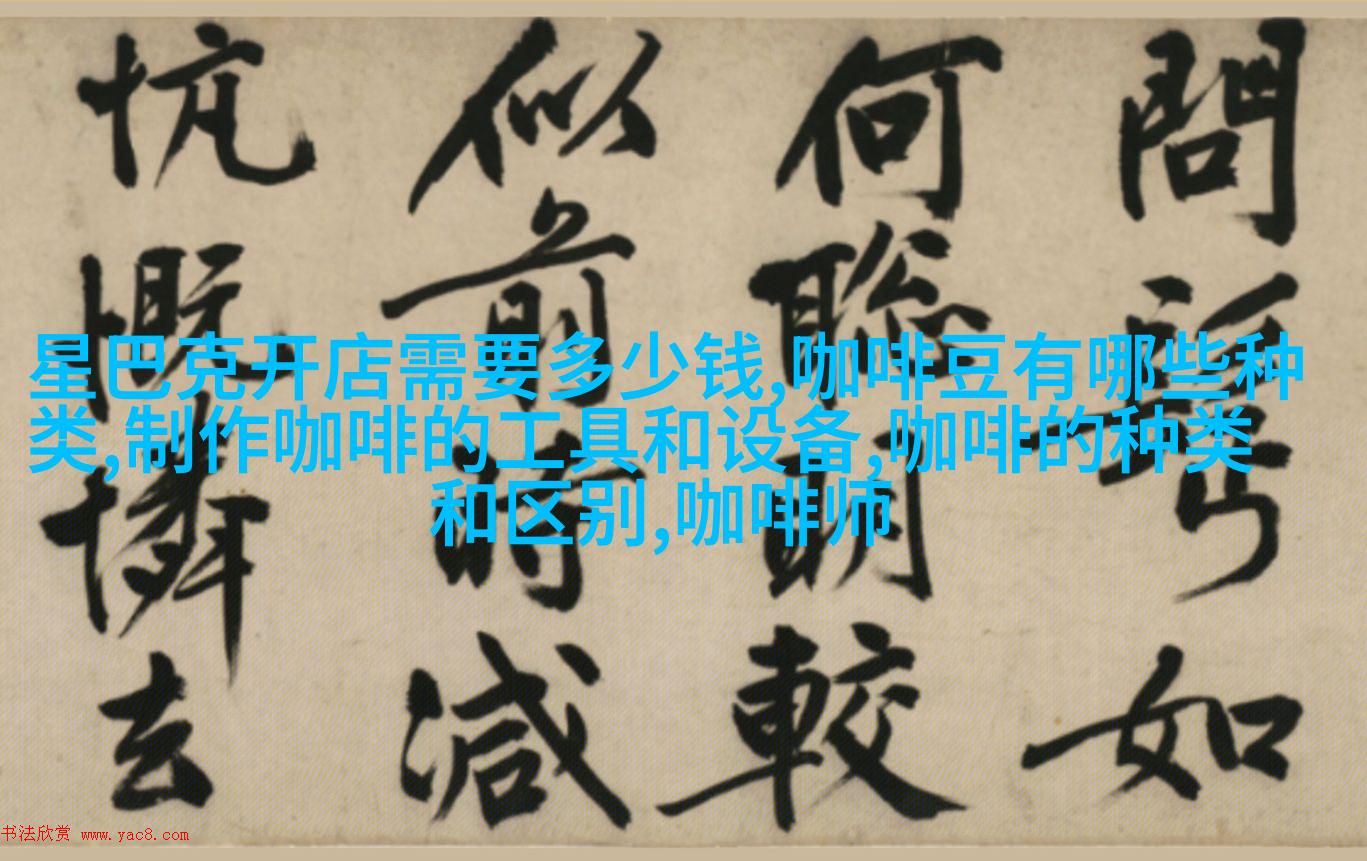 問如
何聰明較
似前時減
忼慨憐去
星巴克开店需要多少钱,咖啡豆有哪些种
类,制作咖啡的工具和设备,咖啡的种类
和区别,咖啡师
书法欣赏 www.yac8.com